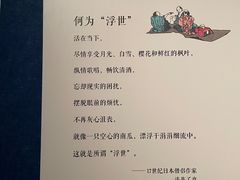 何为“浮世”
活在当下，
尽情享受月光、白雪、樱花和鲜红的枫叶，
纵情歌唱，畅饮清酒，
忘却现实的困扰，
摆脱眼前的烦忧，
不再灰心沮丧，
就像一只空心的南瓜，漂浮于涓涓细流中，
这就是所谓“浮世”。
——17世纪日本僧侣作家
浅井了意